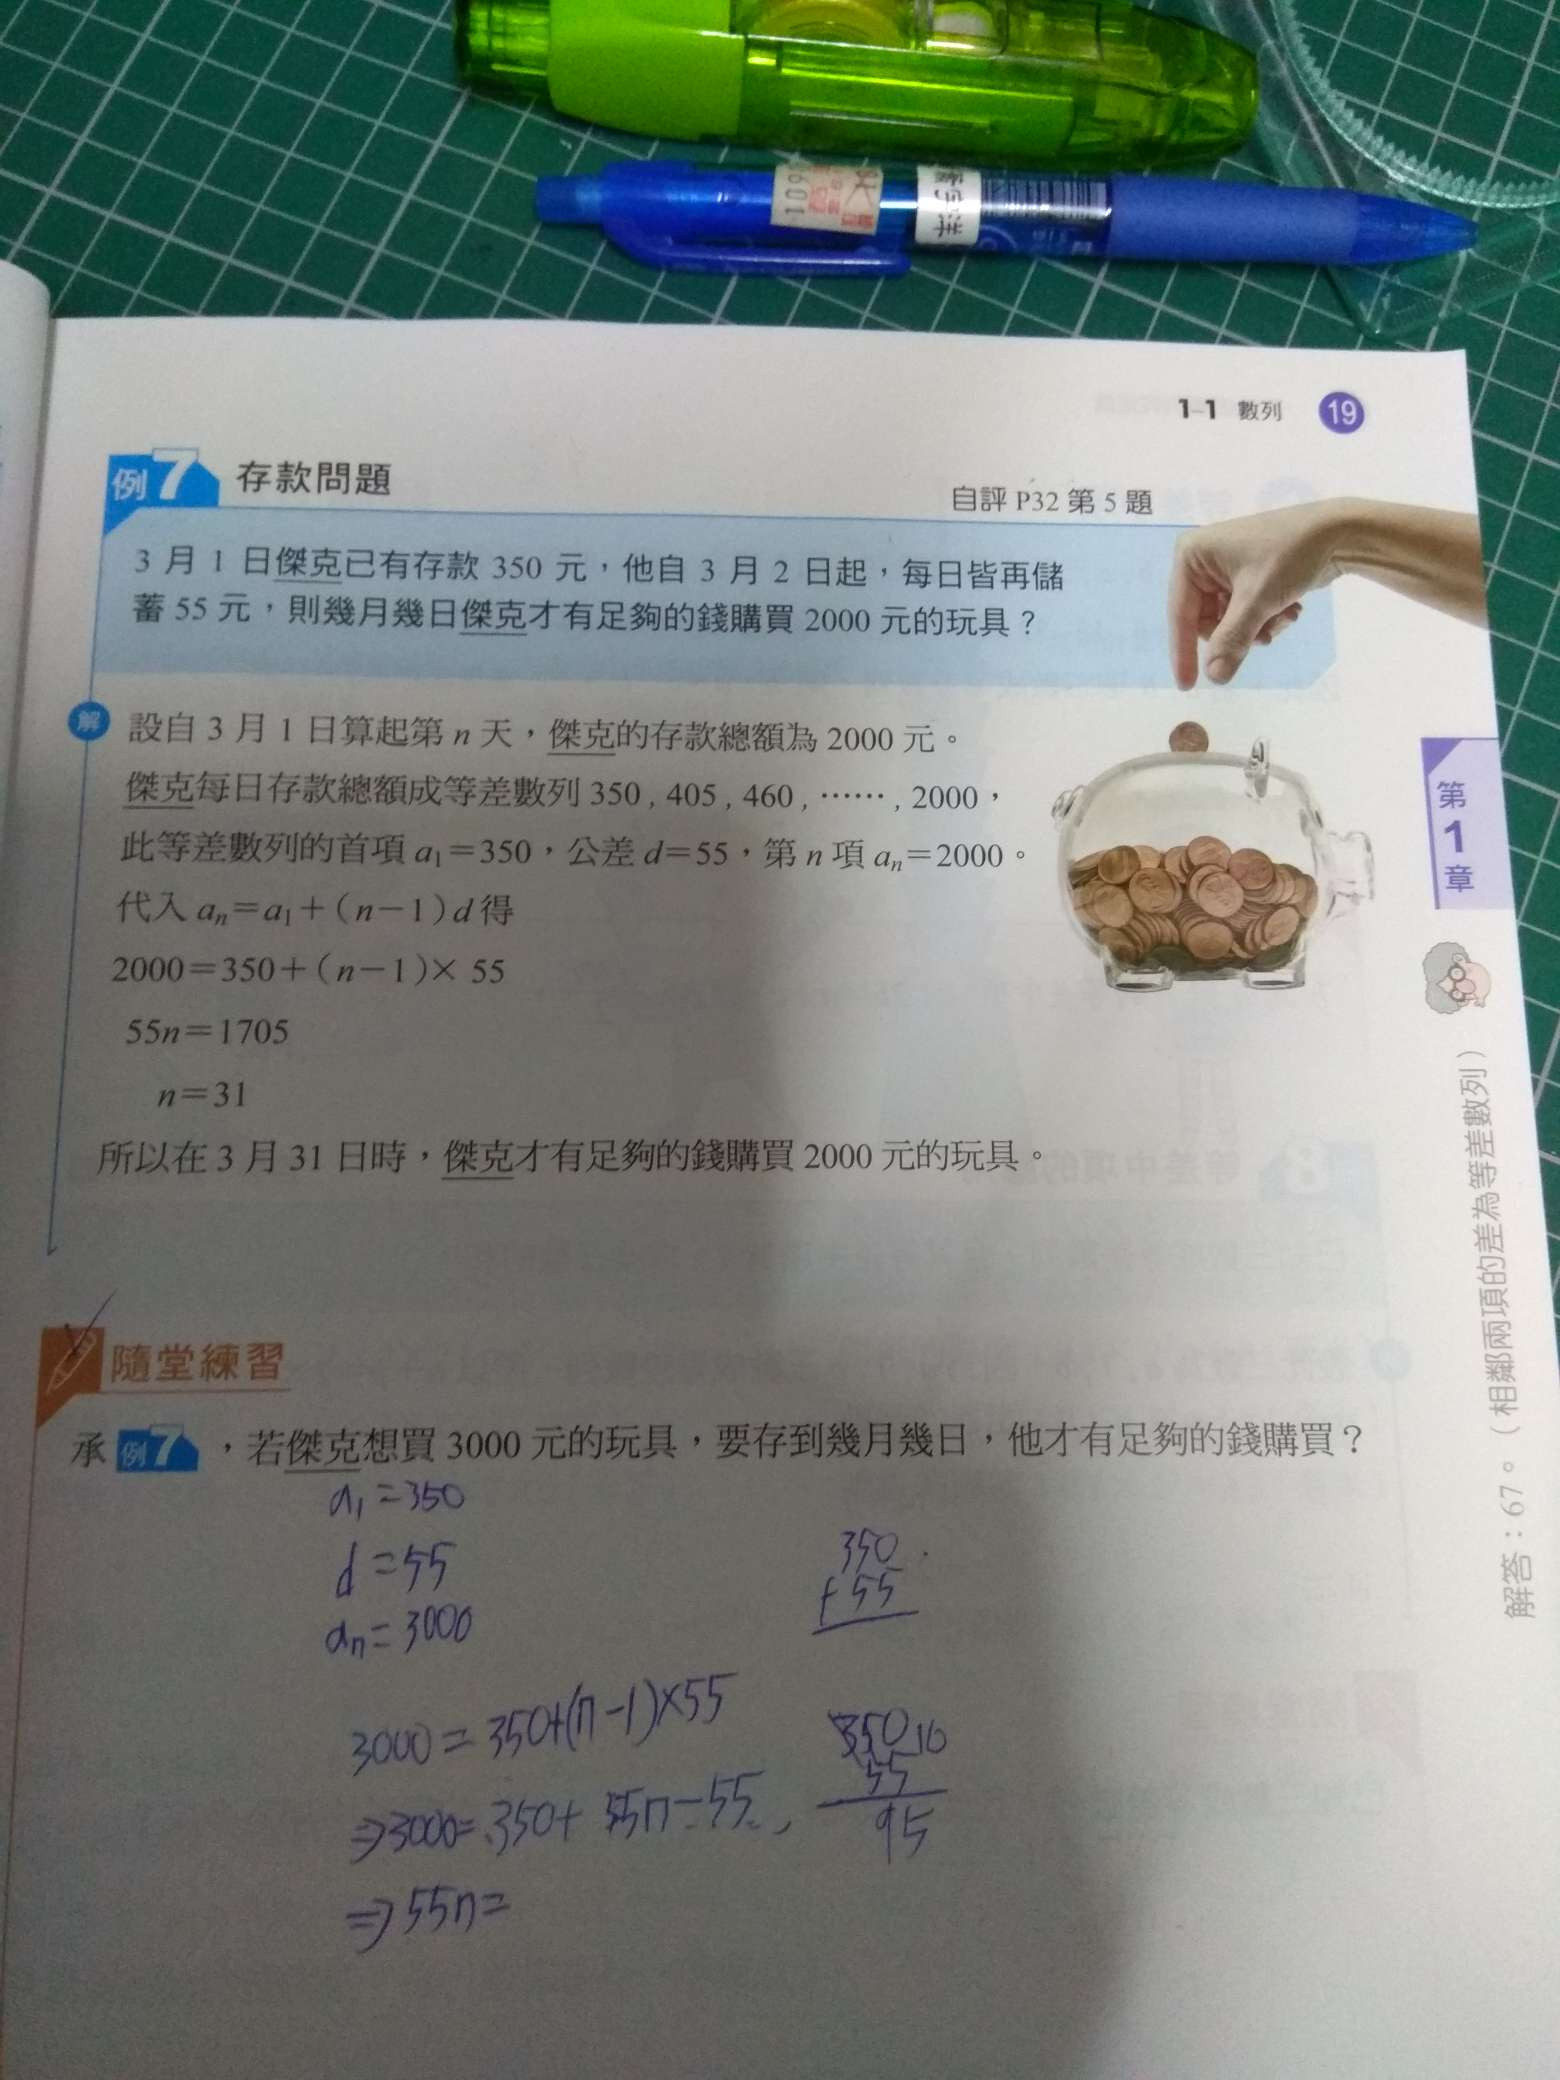 1-1 數列 19
例7 存款問題
自評 P32 第 5 題
3 月 1 日傑克已有存款 350 元，他自 3 月 2 日起，每日皆再儲
蓄 55 元，則幾月幾日傑克才有足夠的錢購買 2000 元的玩具？
解 設自 3 月 1 日算起第 n 天，傑克的存款總額為 2000 元。
傑克每日存款總額成等差數列 350 , 405 , 460 , …… , 2000，
此等差數列的首項 a₁＝350，公差 d＝55，第 n 項 aₙ＝2000。
代入 aₙ＝a₁＋(n－1)d 得
2000＝350＋(n－1)× 55
55n＝1705
n＝31
所以在 3 月 31 日時，傑克才有足夠的錢購買 2000 元的玩具。
第
1
章
解答：67。（相鄰兩項的差為等差數列）
隨堂練習
承 例7 ，若傑克想買 3000 元的玩具，要存到幾月幾日，他才有足夠的錢購買？
a₁=350
d=55
aₙ=3000
350
+55
3000=350+(n-1)×55
⇒3000=350+55n-55
⇒55n=
350 10
55
95